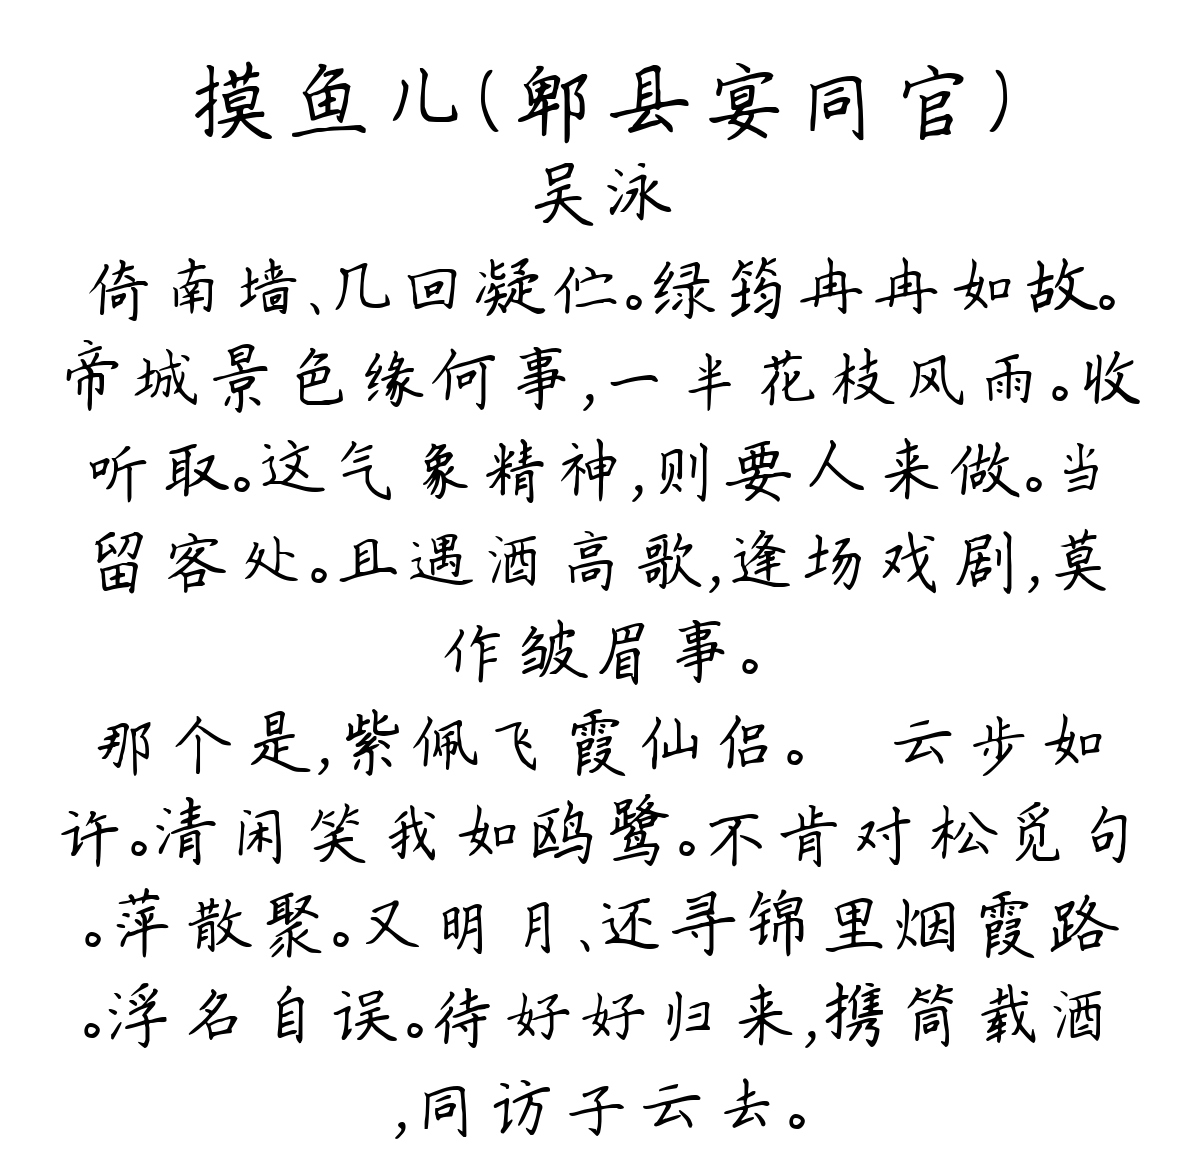 摸鱼儿(郫县宴同官)
吴泳
倚南墙、几回凝伫。绿筠冉冉如故。
帝城景色缘何事,一半花枝风雨。收
听取。这气象精神,则要人来做。当
留客处。且遇酒高歌,逢场戏剧,莫
作皱眉事。
那个是,紫佩飞霞仙侣。　云步如
许。清闲笑我如鸥鹭。不肯对松觅句
。萍散聚。又明月、还寻锦里烟霞路
。浮名自误。待好好归来,携筒载酒
,同访子云去。